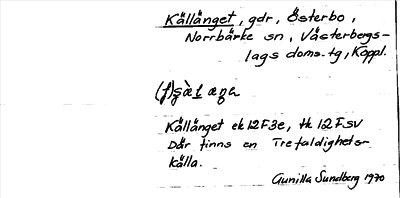 Källänget, gdr, Österbo,
Norrbärke sn, Västerbergs-
lags doms.tg, Koppl.
Källänget ek 12F3e, tk 12Fsv
Där finns en Trefaldighets-
källa.
Gunilla Sundberg 1970